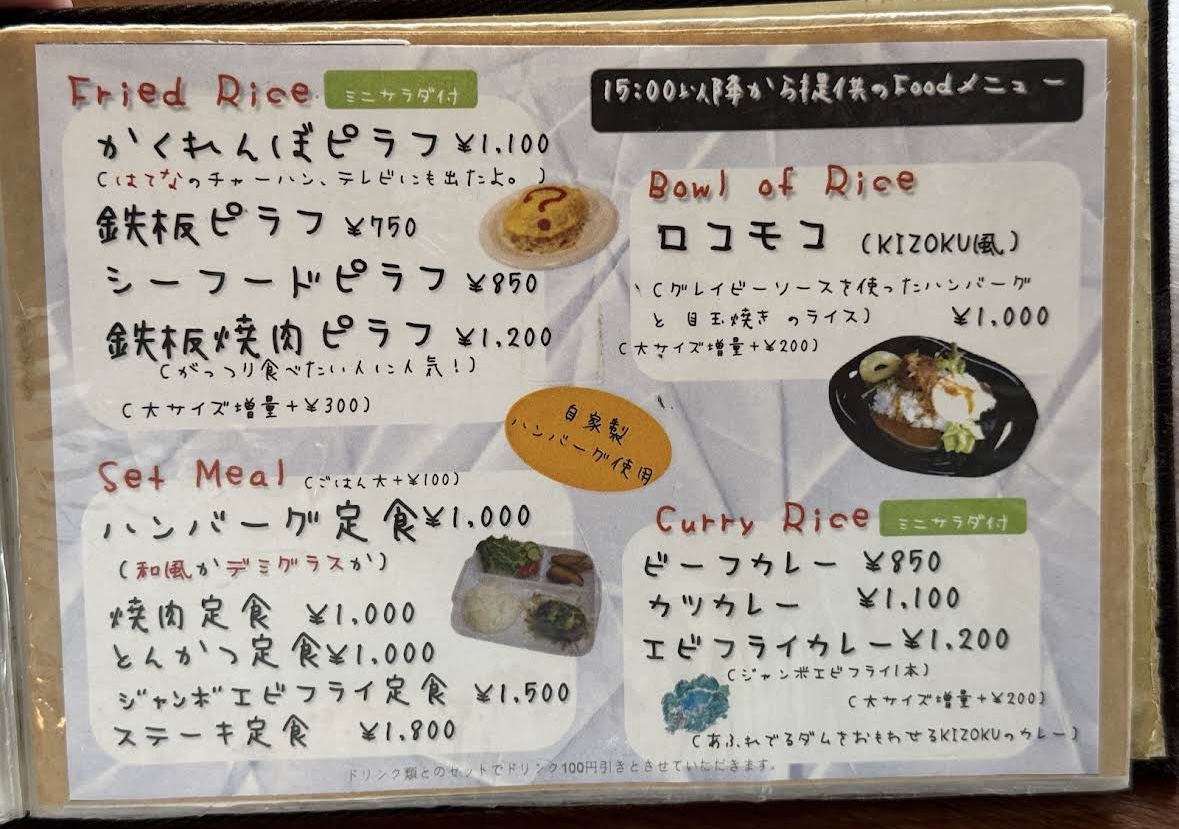 Fried Rice ミニサラダ付
かくれんぼピラフ ¥1,100
(はてなのチャーハン、テレビにも出たよ。)
?
鉄板ピラフ ¥750
シーフードピラフ ¥850
鉄板焼肉ピラフ ¥1,200
(がっつり食べたい人に人気!)
(大サイズ増量+¥300)
15:00以降から提供のFoodメニュー
Bowl of Rice
ロコモコ (KIZOKU風)
(グレイビーソースを使ったハンバーグ
と 目玉焼き のライス) ¥1,000
(大サイズ増量+¥200)
自家製
ハンバーグ使用
Set Meal (ごはん大+¥100)
ハンバーグ定食¥1,000
(和風かデミグラスか)
焼肉定食 ¥1,000
とんかつ定食¥1,000
ジャンボエビフライ定食 ¥1,500
ステーキ定食 ¥1,800
Curry Rice ミニサラダ付
ビーフカレー ¥850
カツカレー ¥1,100
エビフライカレー¥1,200
(ジャンボエビフライ1本)
(大サイズ増量+¥200)
(あふれでるダムをおもわせるKIZOKUのカレー)
ドリンク類とのセットでドリンク100円引きとさせていただきます。